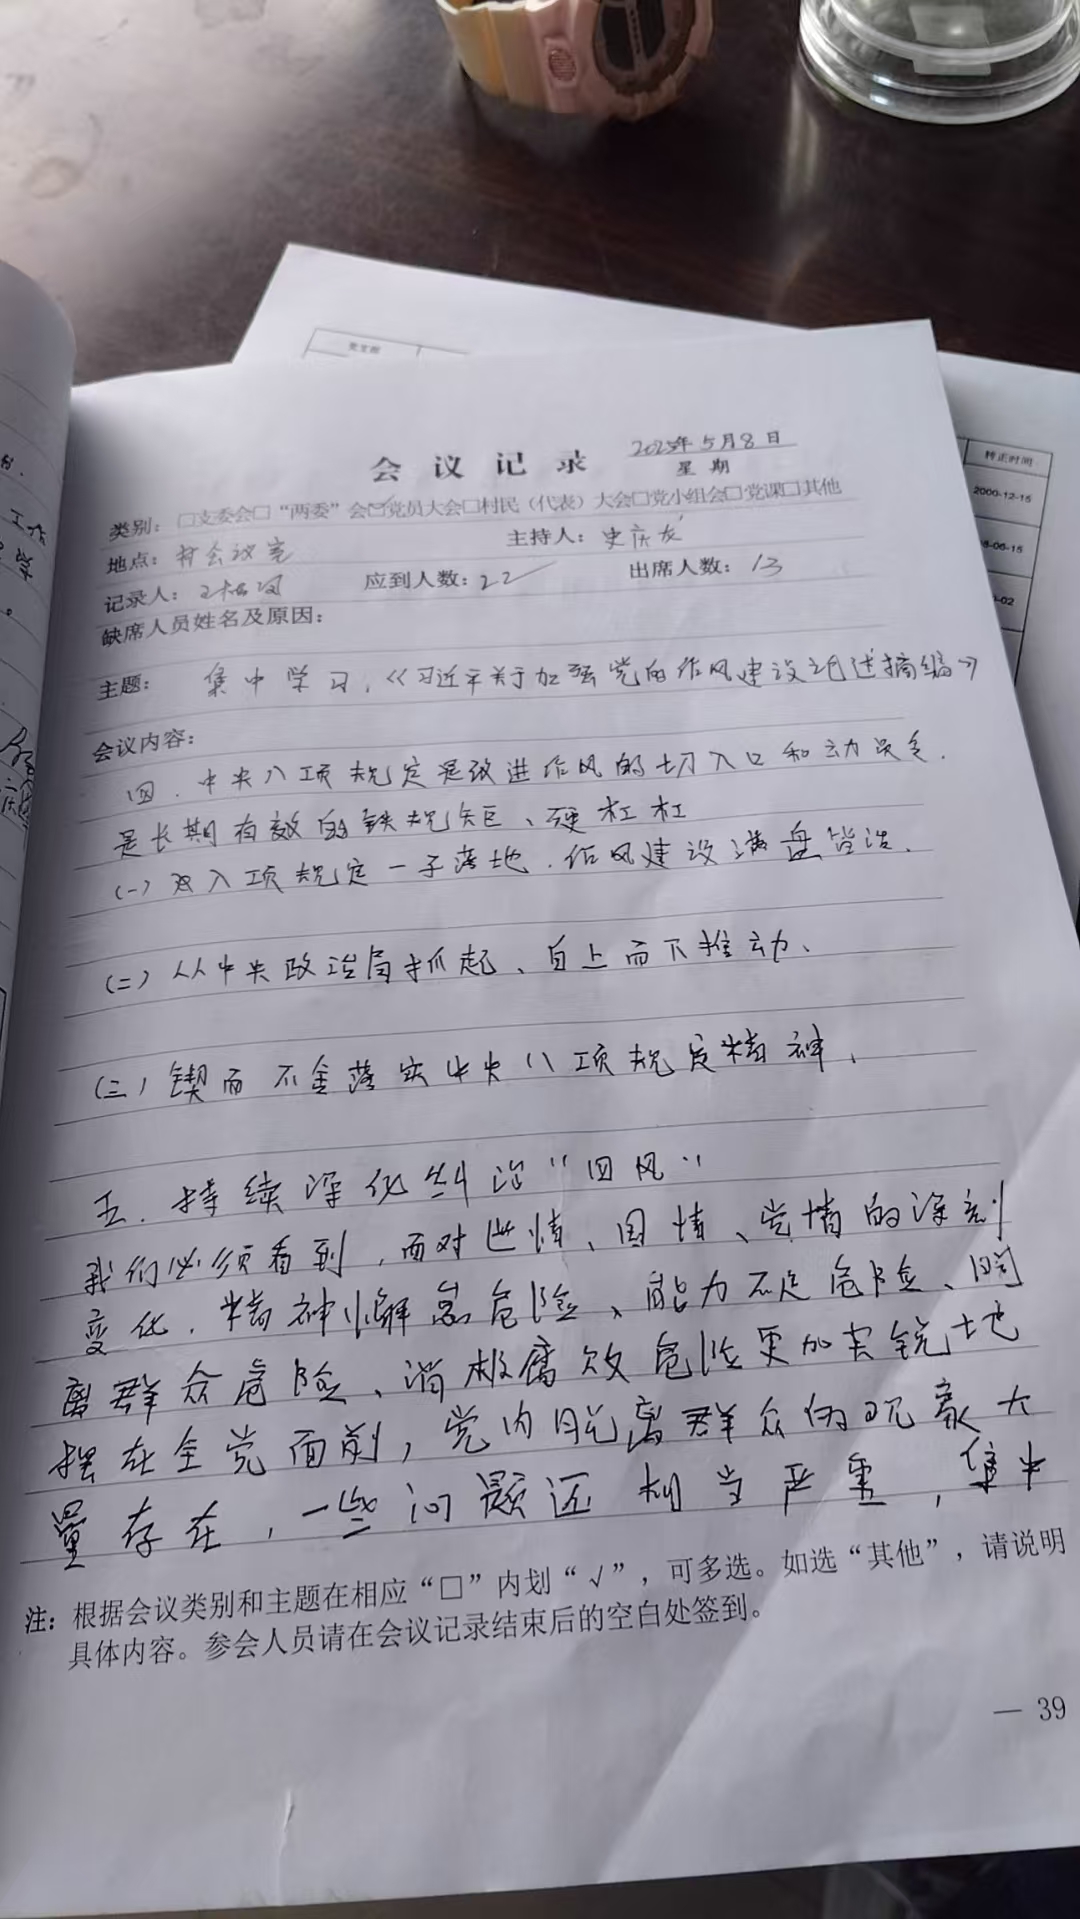 党支部
转走时间
2000-12-15
-06-15
-02
会议记录
2025年5月8日
星期
类别：□支委会□“两委”会☑党员大会□村民（代表）大会□党小组会□党课□其他
地点：村会议室 主持人：史庆友
记录人： 应到人数：22 出席人数：13
缺席人员姓名及原因：
主题：集中学习，《习近平关于加强党的作风建设论述摘编》
会议内容：
四．中央八项规定是改进作风的切入口和动员令．
是长期有效的铁规矩、硬杠杠
(一) 以八项规定一子落地．作风建设满盘皆活．
(二) 从中央政治局抓起、自上而下推动、
(三) 锲而不舍落实中央八项规定精神，
五．持续深化纠治“四风”
我们必须看到，面对世情、国情、党情的深刻
变化．精神懈怠危险、能力不足危险、脱
离群众危险、消极腐败危险更加尖锐地
摆在全党面前，党内脱离群众的现象大
量存在，一些问题还相当严重，集中
注：根据会议类别和主题在相应“□”内划“√”，可多选。如选“其他”，请说明
具体内容。参会人员请在会议记录结束后的空白处签到。
— 39